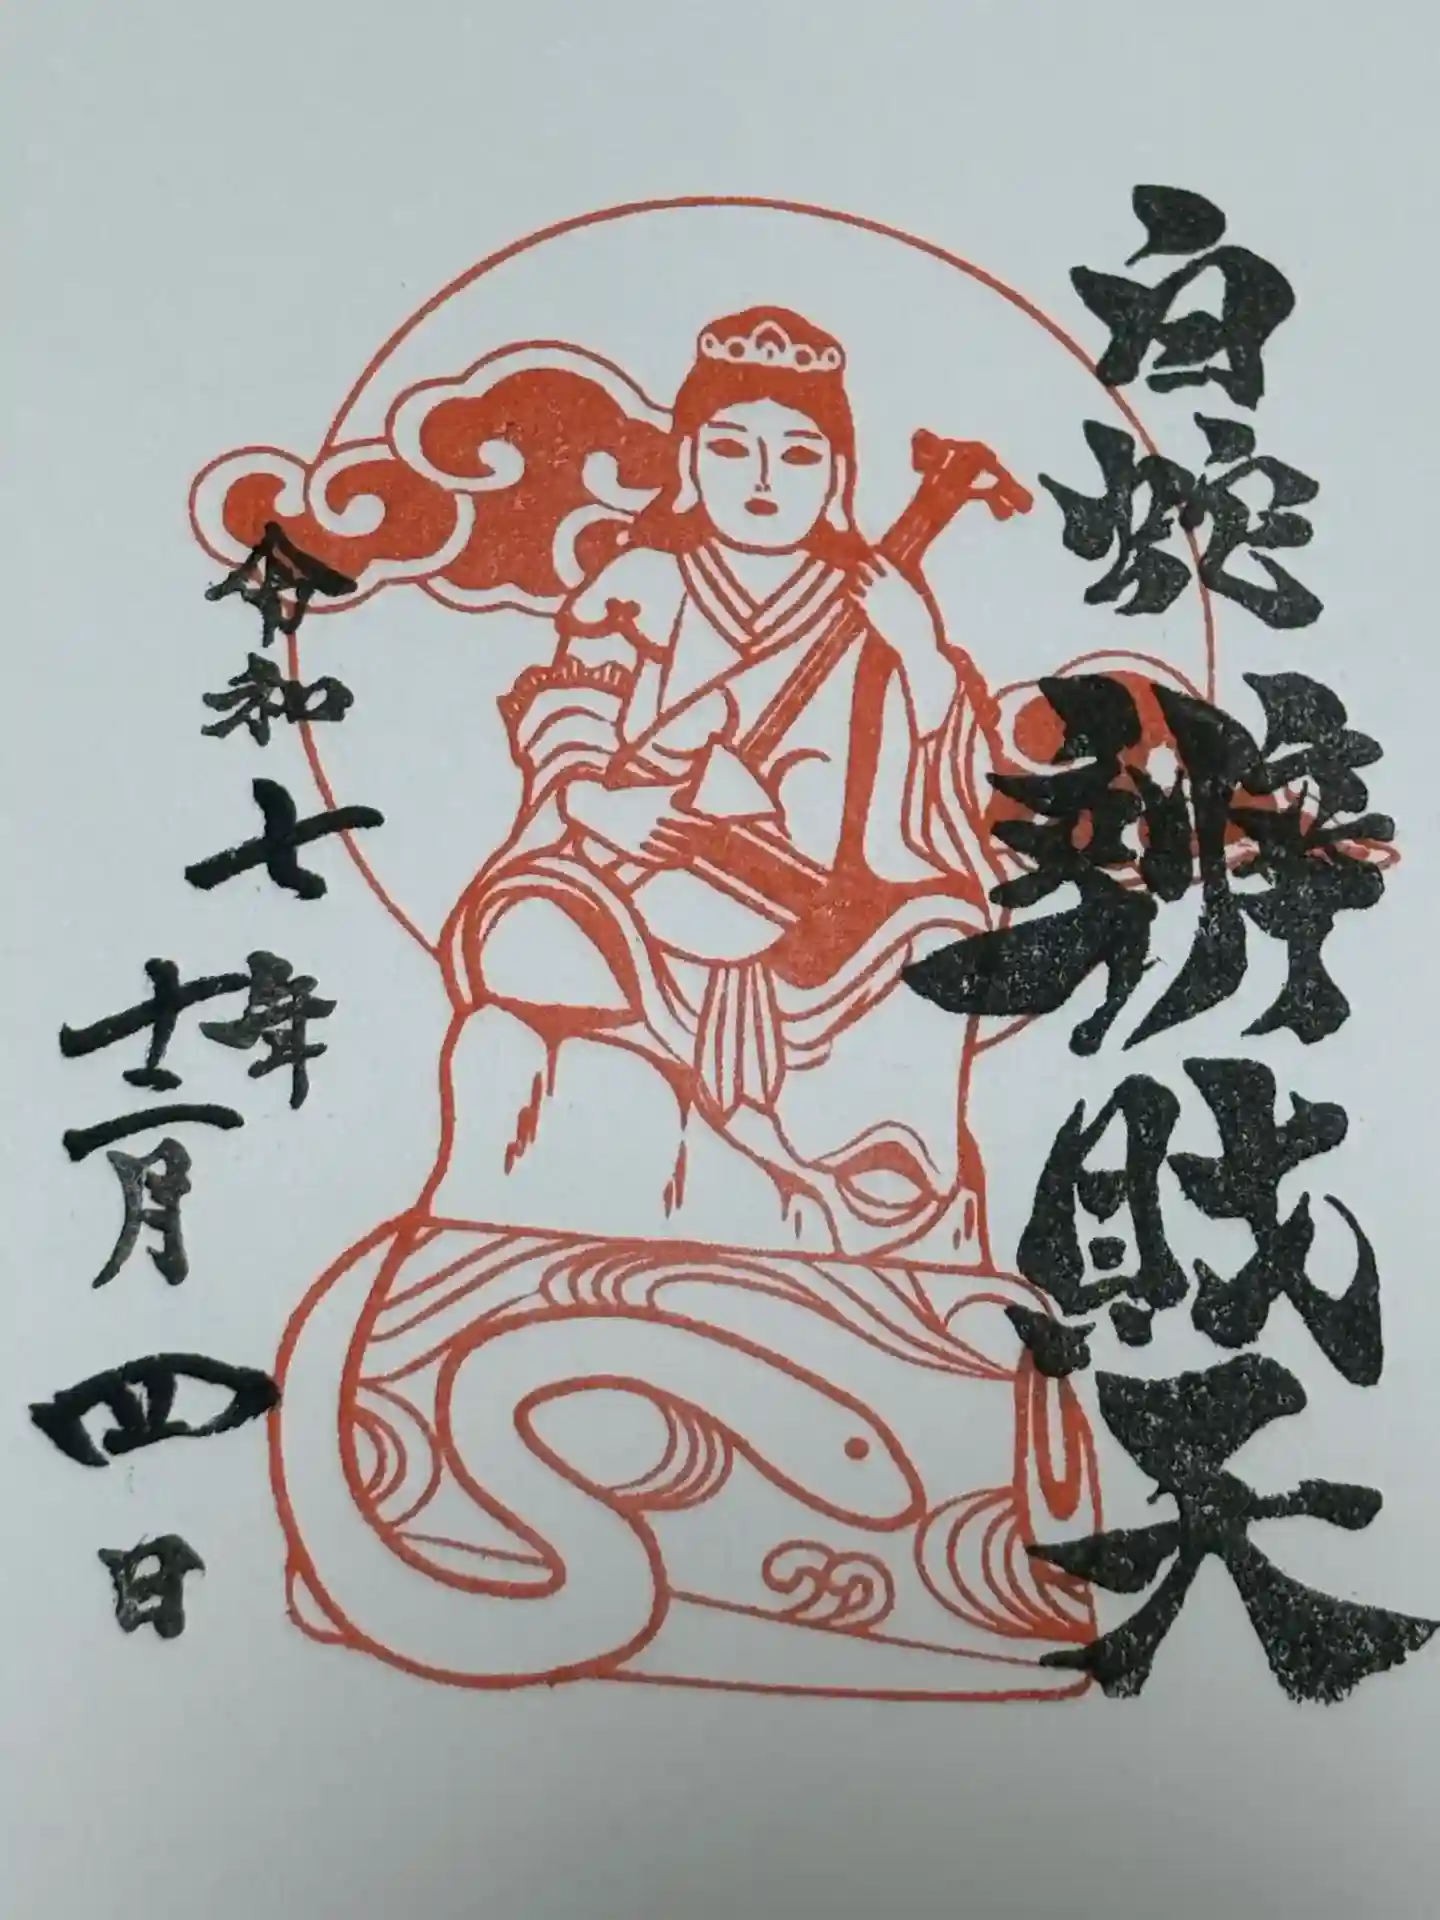 白蛇辨財天
令和七年
十二月四日